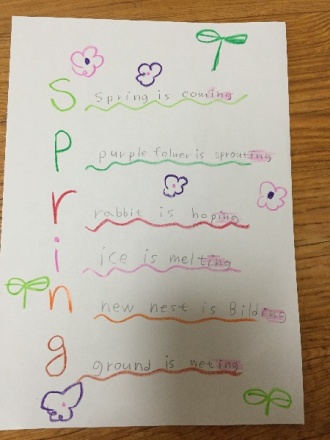 S Spring is coming
P purple folwer is sprouting
r rabbit is hoping
i ice is melting
n new nest is Bilding
g ground is weting